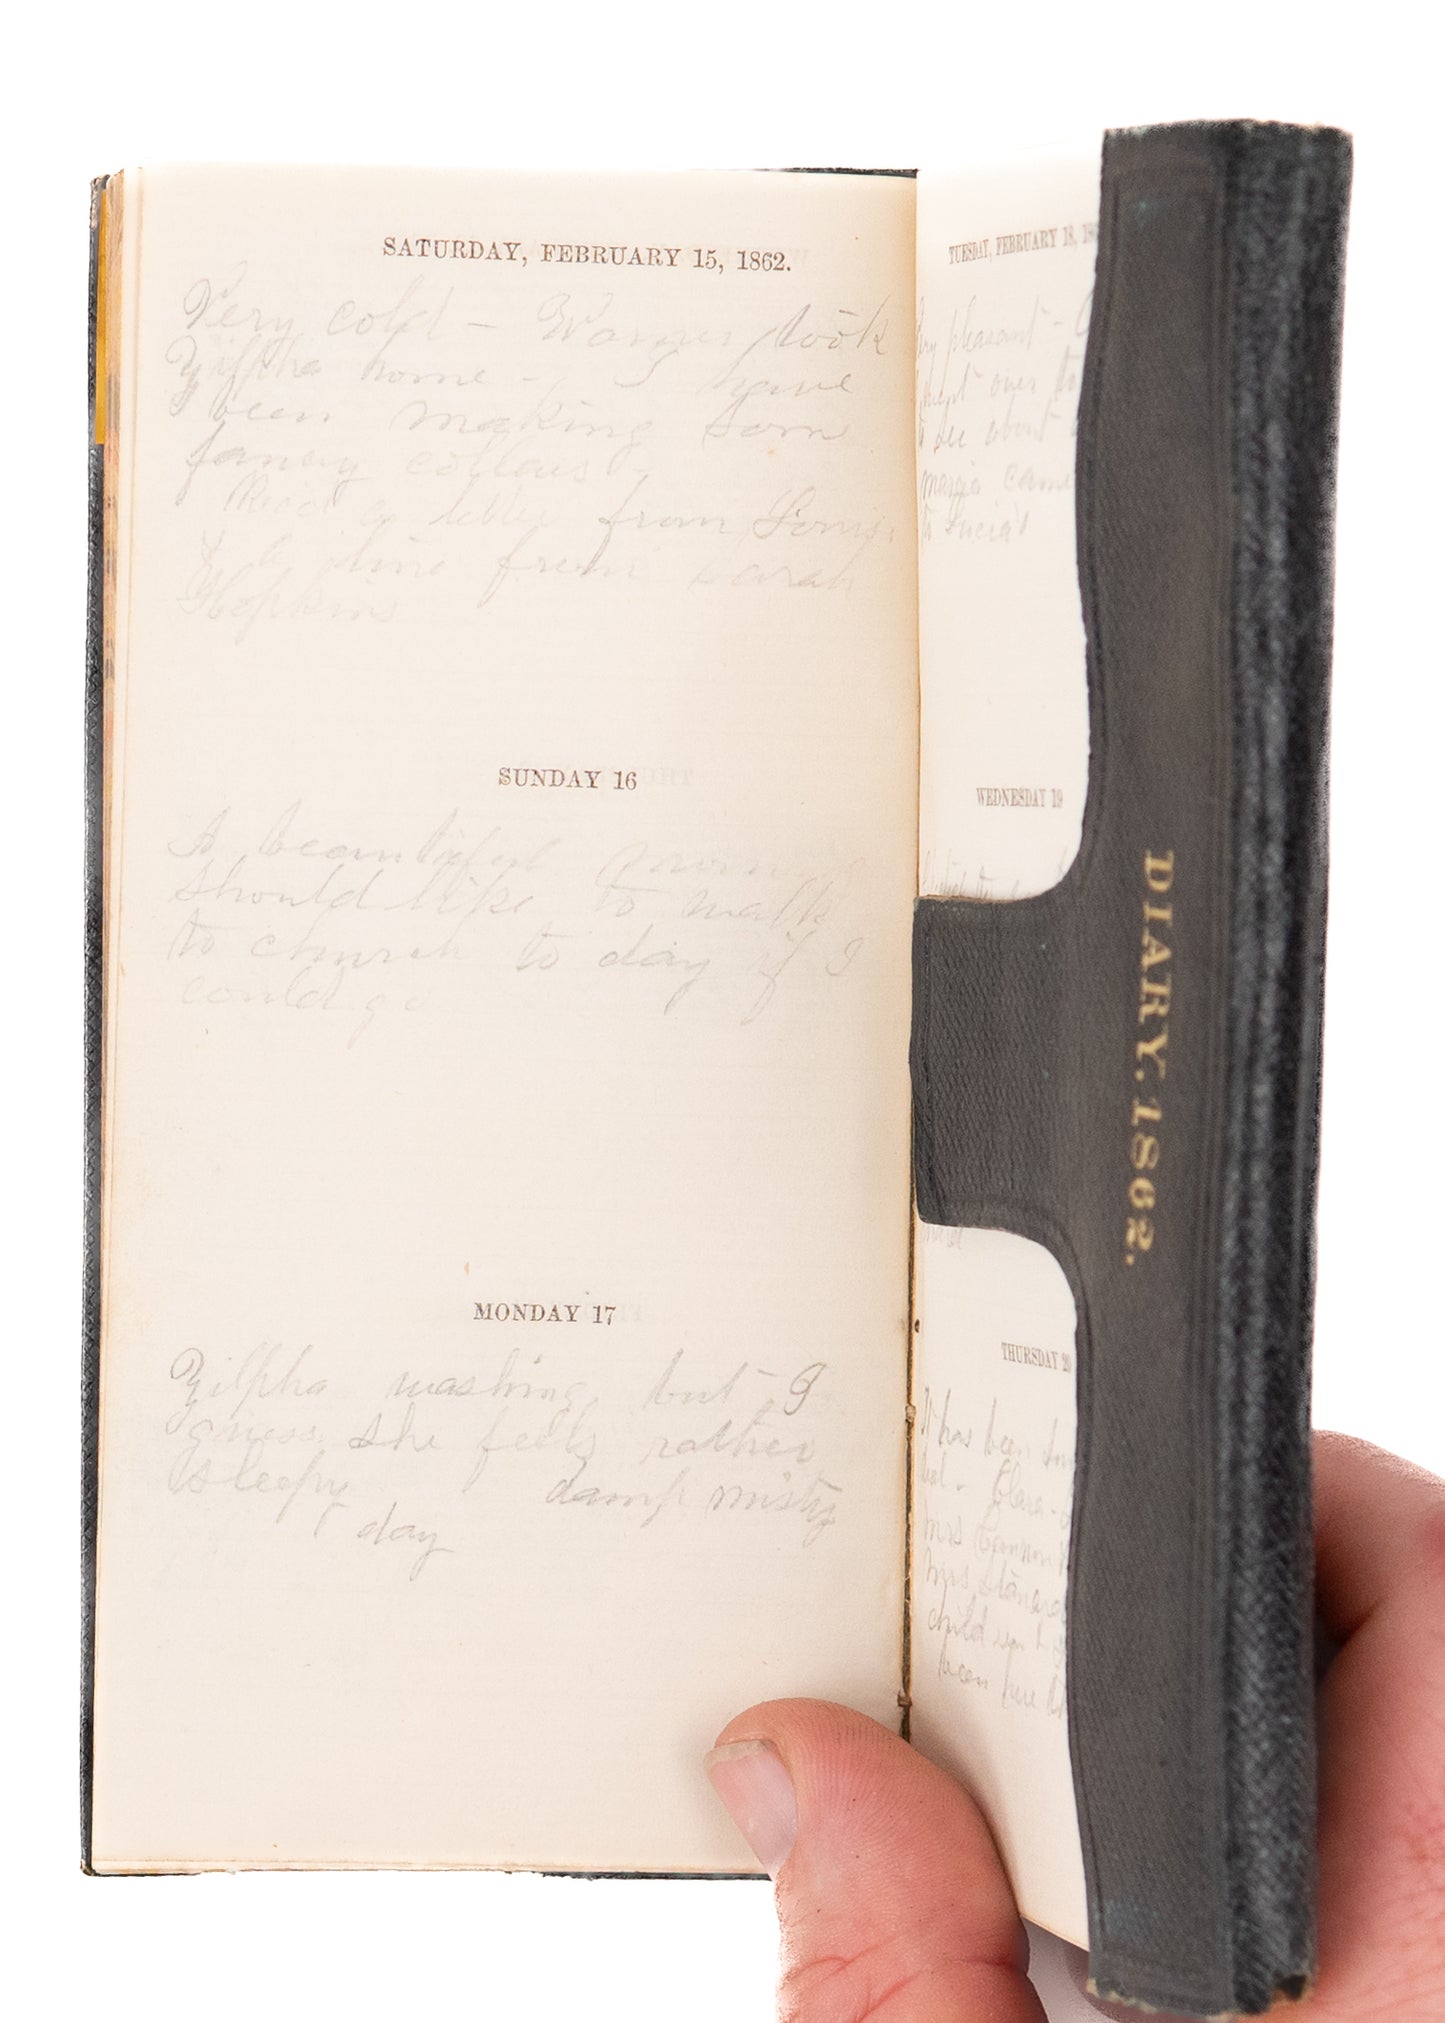 SATURDAY, FEBRUARY 15, 1862.
Very cold - Warner took
Zilpha home - I have
been making some
fancy collars -
Recd a letter from Louisa
& a line from Sarah
Hopkins
SUNDAY 16
A beautiful morning
should like to walk
to church to day if I
could go
MONDAY 17
Zilpha washing but I
guess she feels rather
sleepy damp misty
day
TUESDAY, FEBRUARY 18, 18
pleasant -
went over to
to see about
came
to Lucia's
WEDNESDAY 19
THURSDAY 20
It has been
Clara -
Mrs Cannon
Mrs
child
been here
DIARY. 1862.